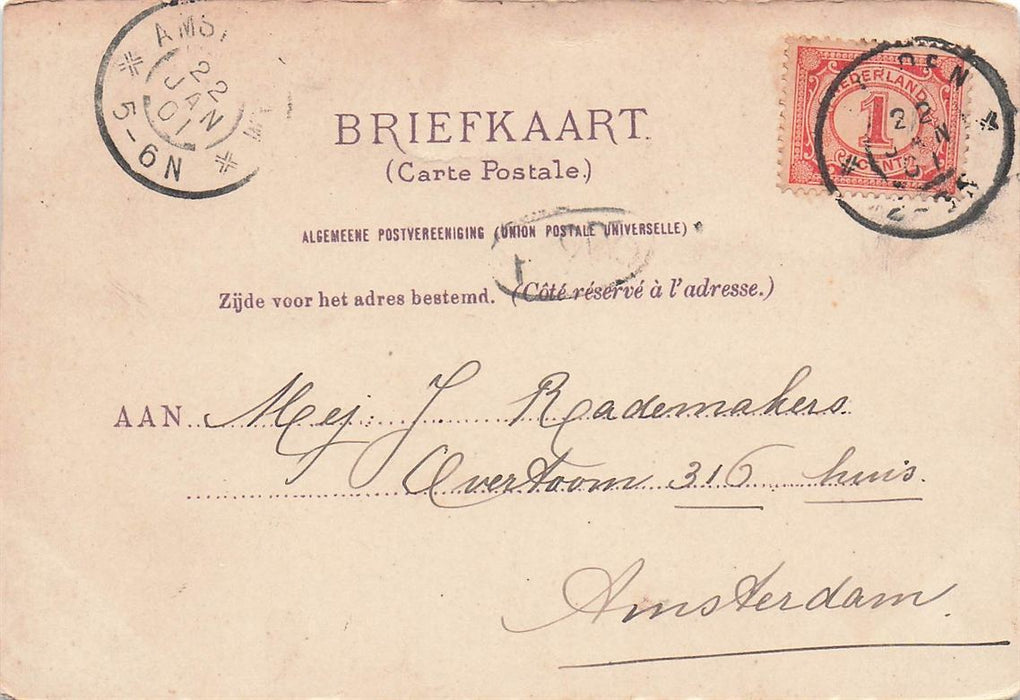 AMST
22
JAN
01
5-6N
BRIEFKAART.
(Carte Postale.)
NEDERLAND
1
CENT
DEN
ALGEMEENE POSTVEREENIGING (UNION POSTALE UNIVERSELLE)
Zijde voor het adres bestemd. (Côté réservé à l'adresse.)
AAN Mej. J. Rademakers
Overtoom 316 huis.
Amsterdam.